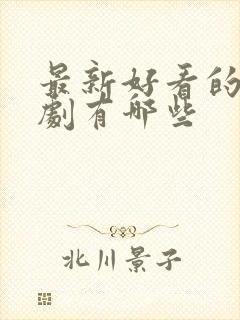 最新好看的
劇有哪些
北川景子